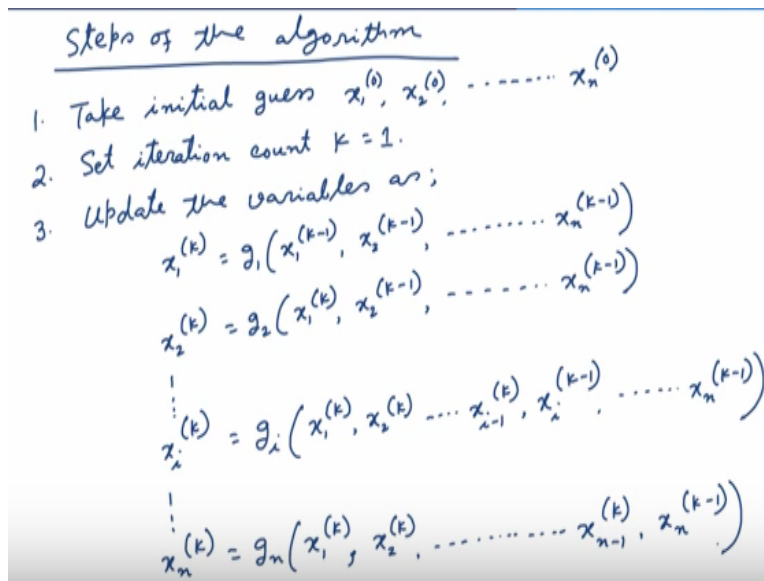 Steps of the algorithm
1. Take initial guess x₁⁽⁰⁾, x₂⁽⁰⁾, -------- xₙ⁽⁰⁾
2. Set iteration count k = 1.
3. Update the variables as;
x₁⁽ᵏ⁾ = g₁(x₁⁽ᵏ⁻¹⁾, x₂⁽ᵏ⁻¹⁾, --------- xₙ⁽ᵏ⁻¹⁾)
x₂⁽ᵏ⁾ = g₂(x₁⁽ᵏ⁾, x₂⁽ᵏ⁻¹⁾, -------- xₙ⁽ᵏ⁻¹⁾)
xᵢ⁽ᵏ⁾ = gᵢ(x₁⁽ᵏ⁾, x₂⁽ᵏ⁾ ---- xᵢ₋₁⁽ᵏ⁾, xᵢ⁽ᵏ⁻¹⁾, ------ xₙ⁽ᵏ⁻¹⁾)
xₙ⁽ᵏ⁾ = gₙ(x₁⁽ᵏ⁾, x₂⁽ᵏ⁾, ------------ xₙ₋₁⁽ᵏ⁾, xₙ⁽ᵏ⁻¹⁾)